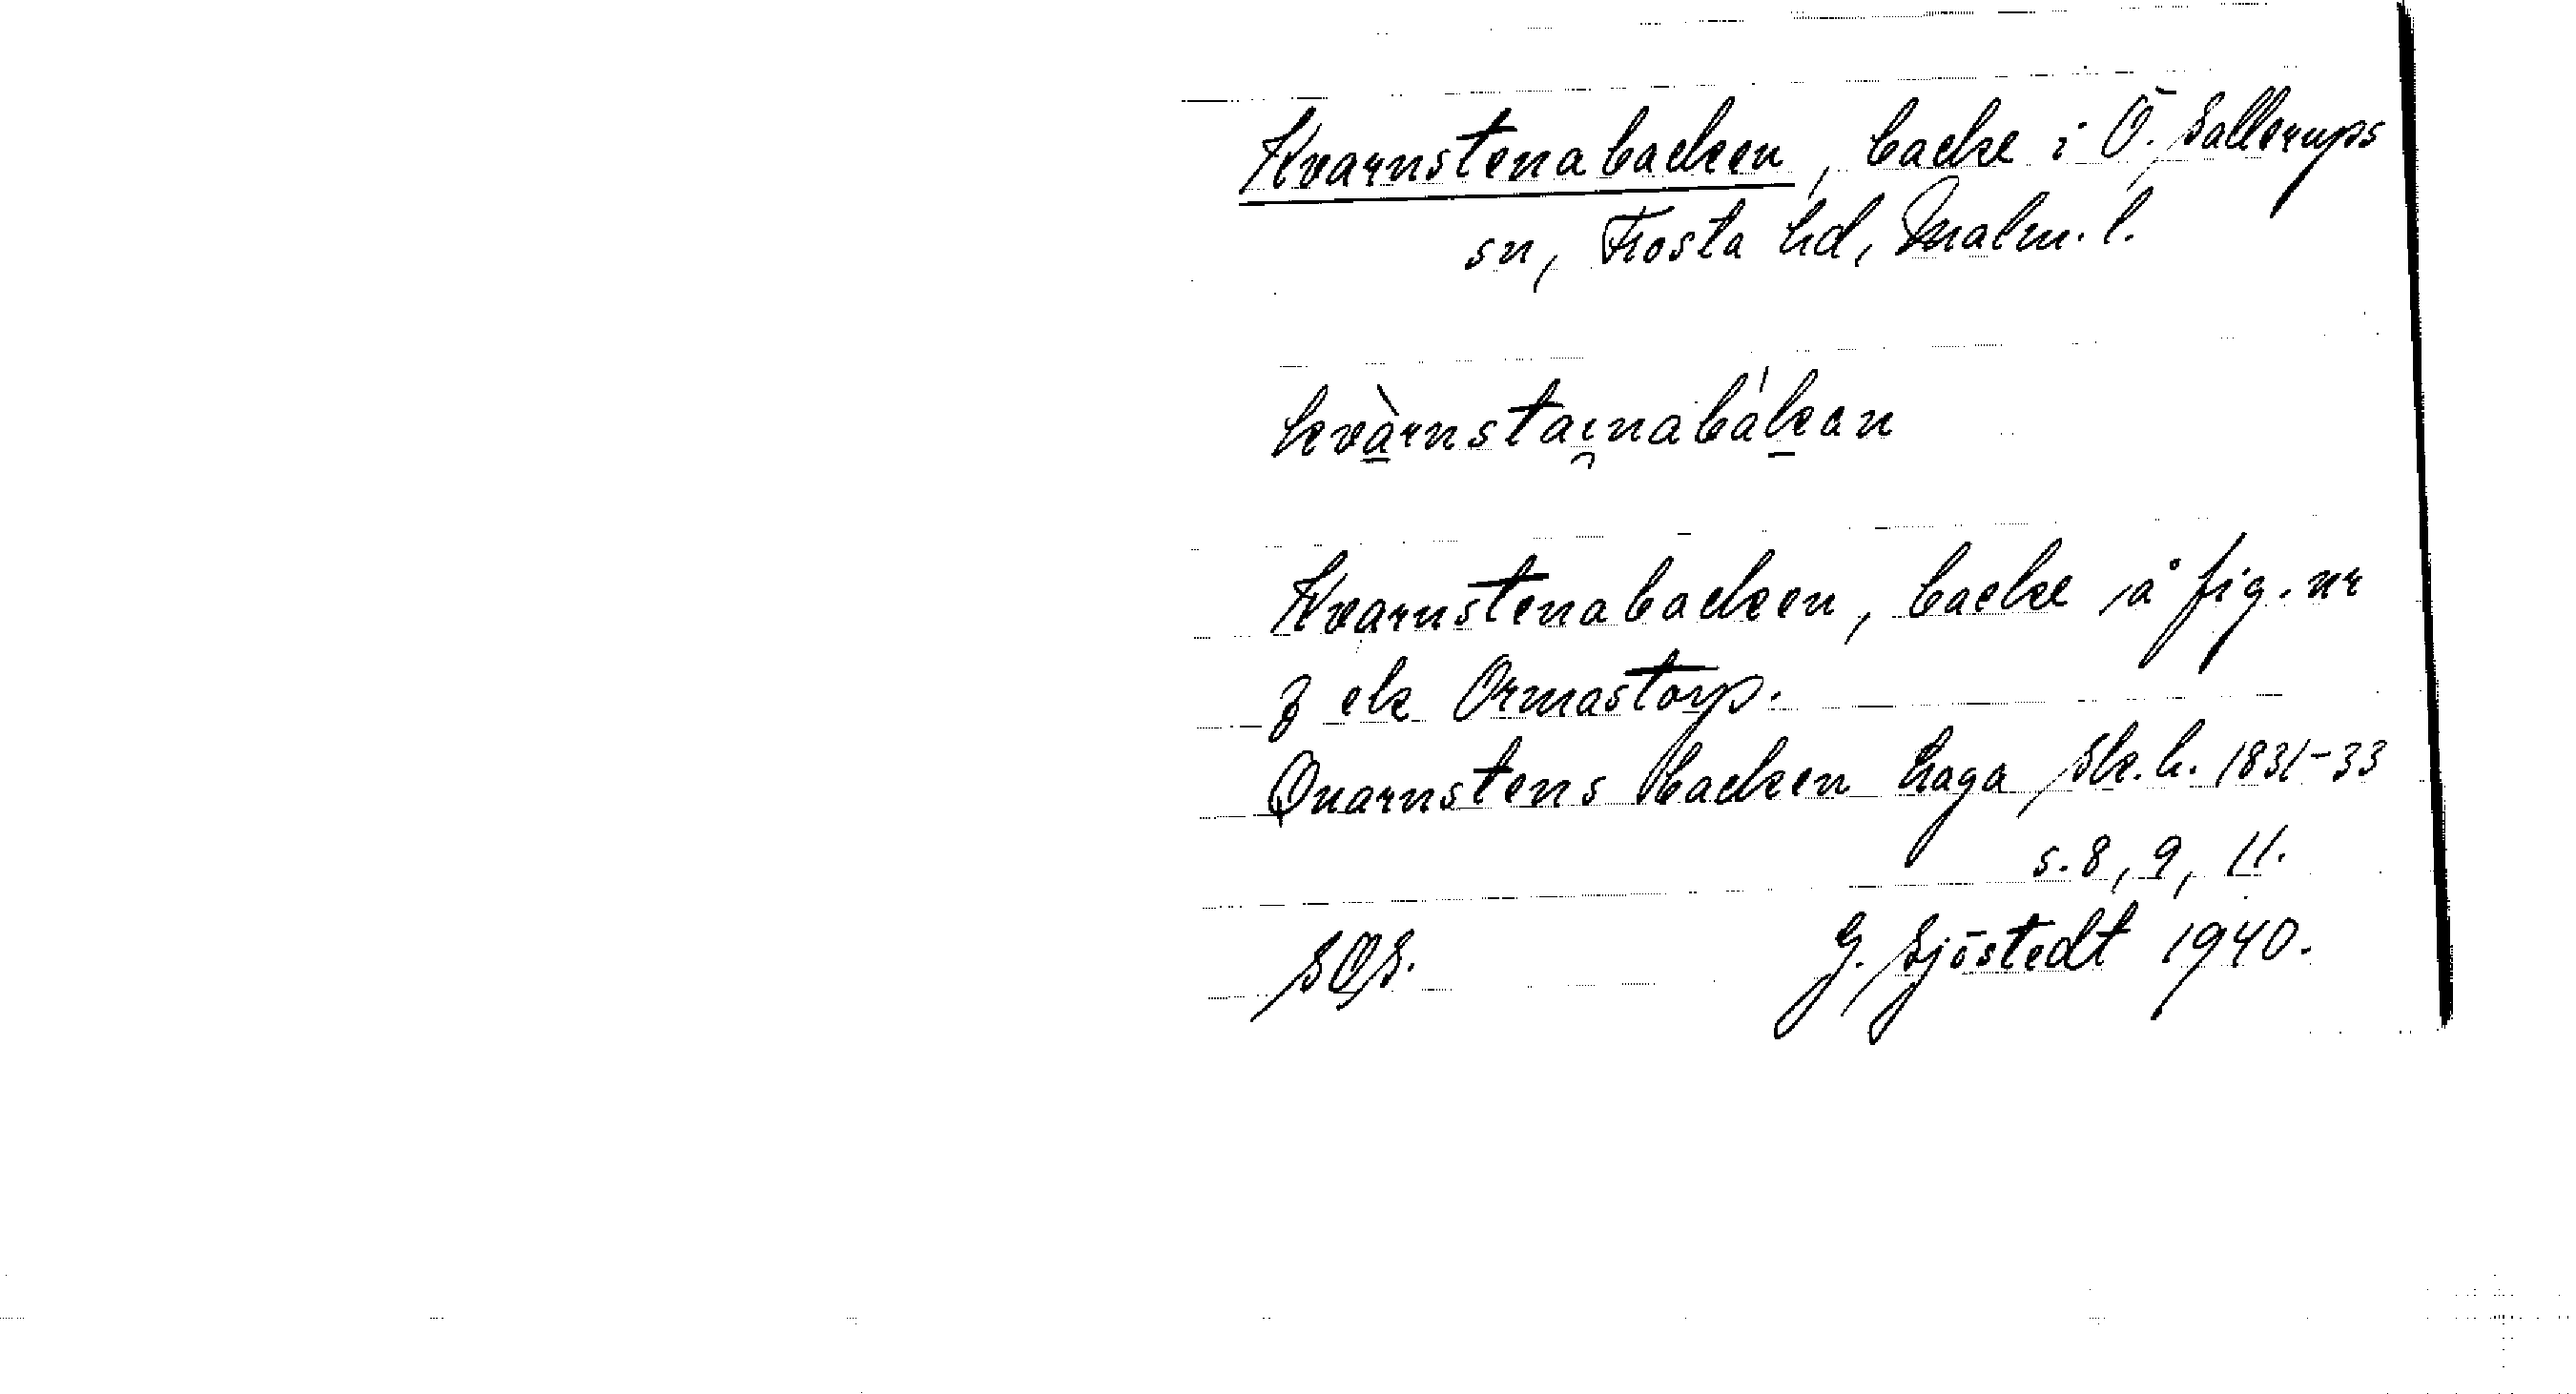 Kvarnstenabacken, backe i Ö. Sallerups
sn, Frosta hd, Malm. l.
kvàrnstai̯nabákan
Kvarnstenabacken, backe å fig. nr
8 ek Ormastorp.
Quarnstens backen haga Sk. h. 1831-33
s. 8, 9, 11.
SOS. G. Sjöstedt 1940.